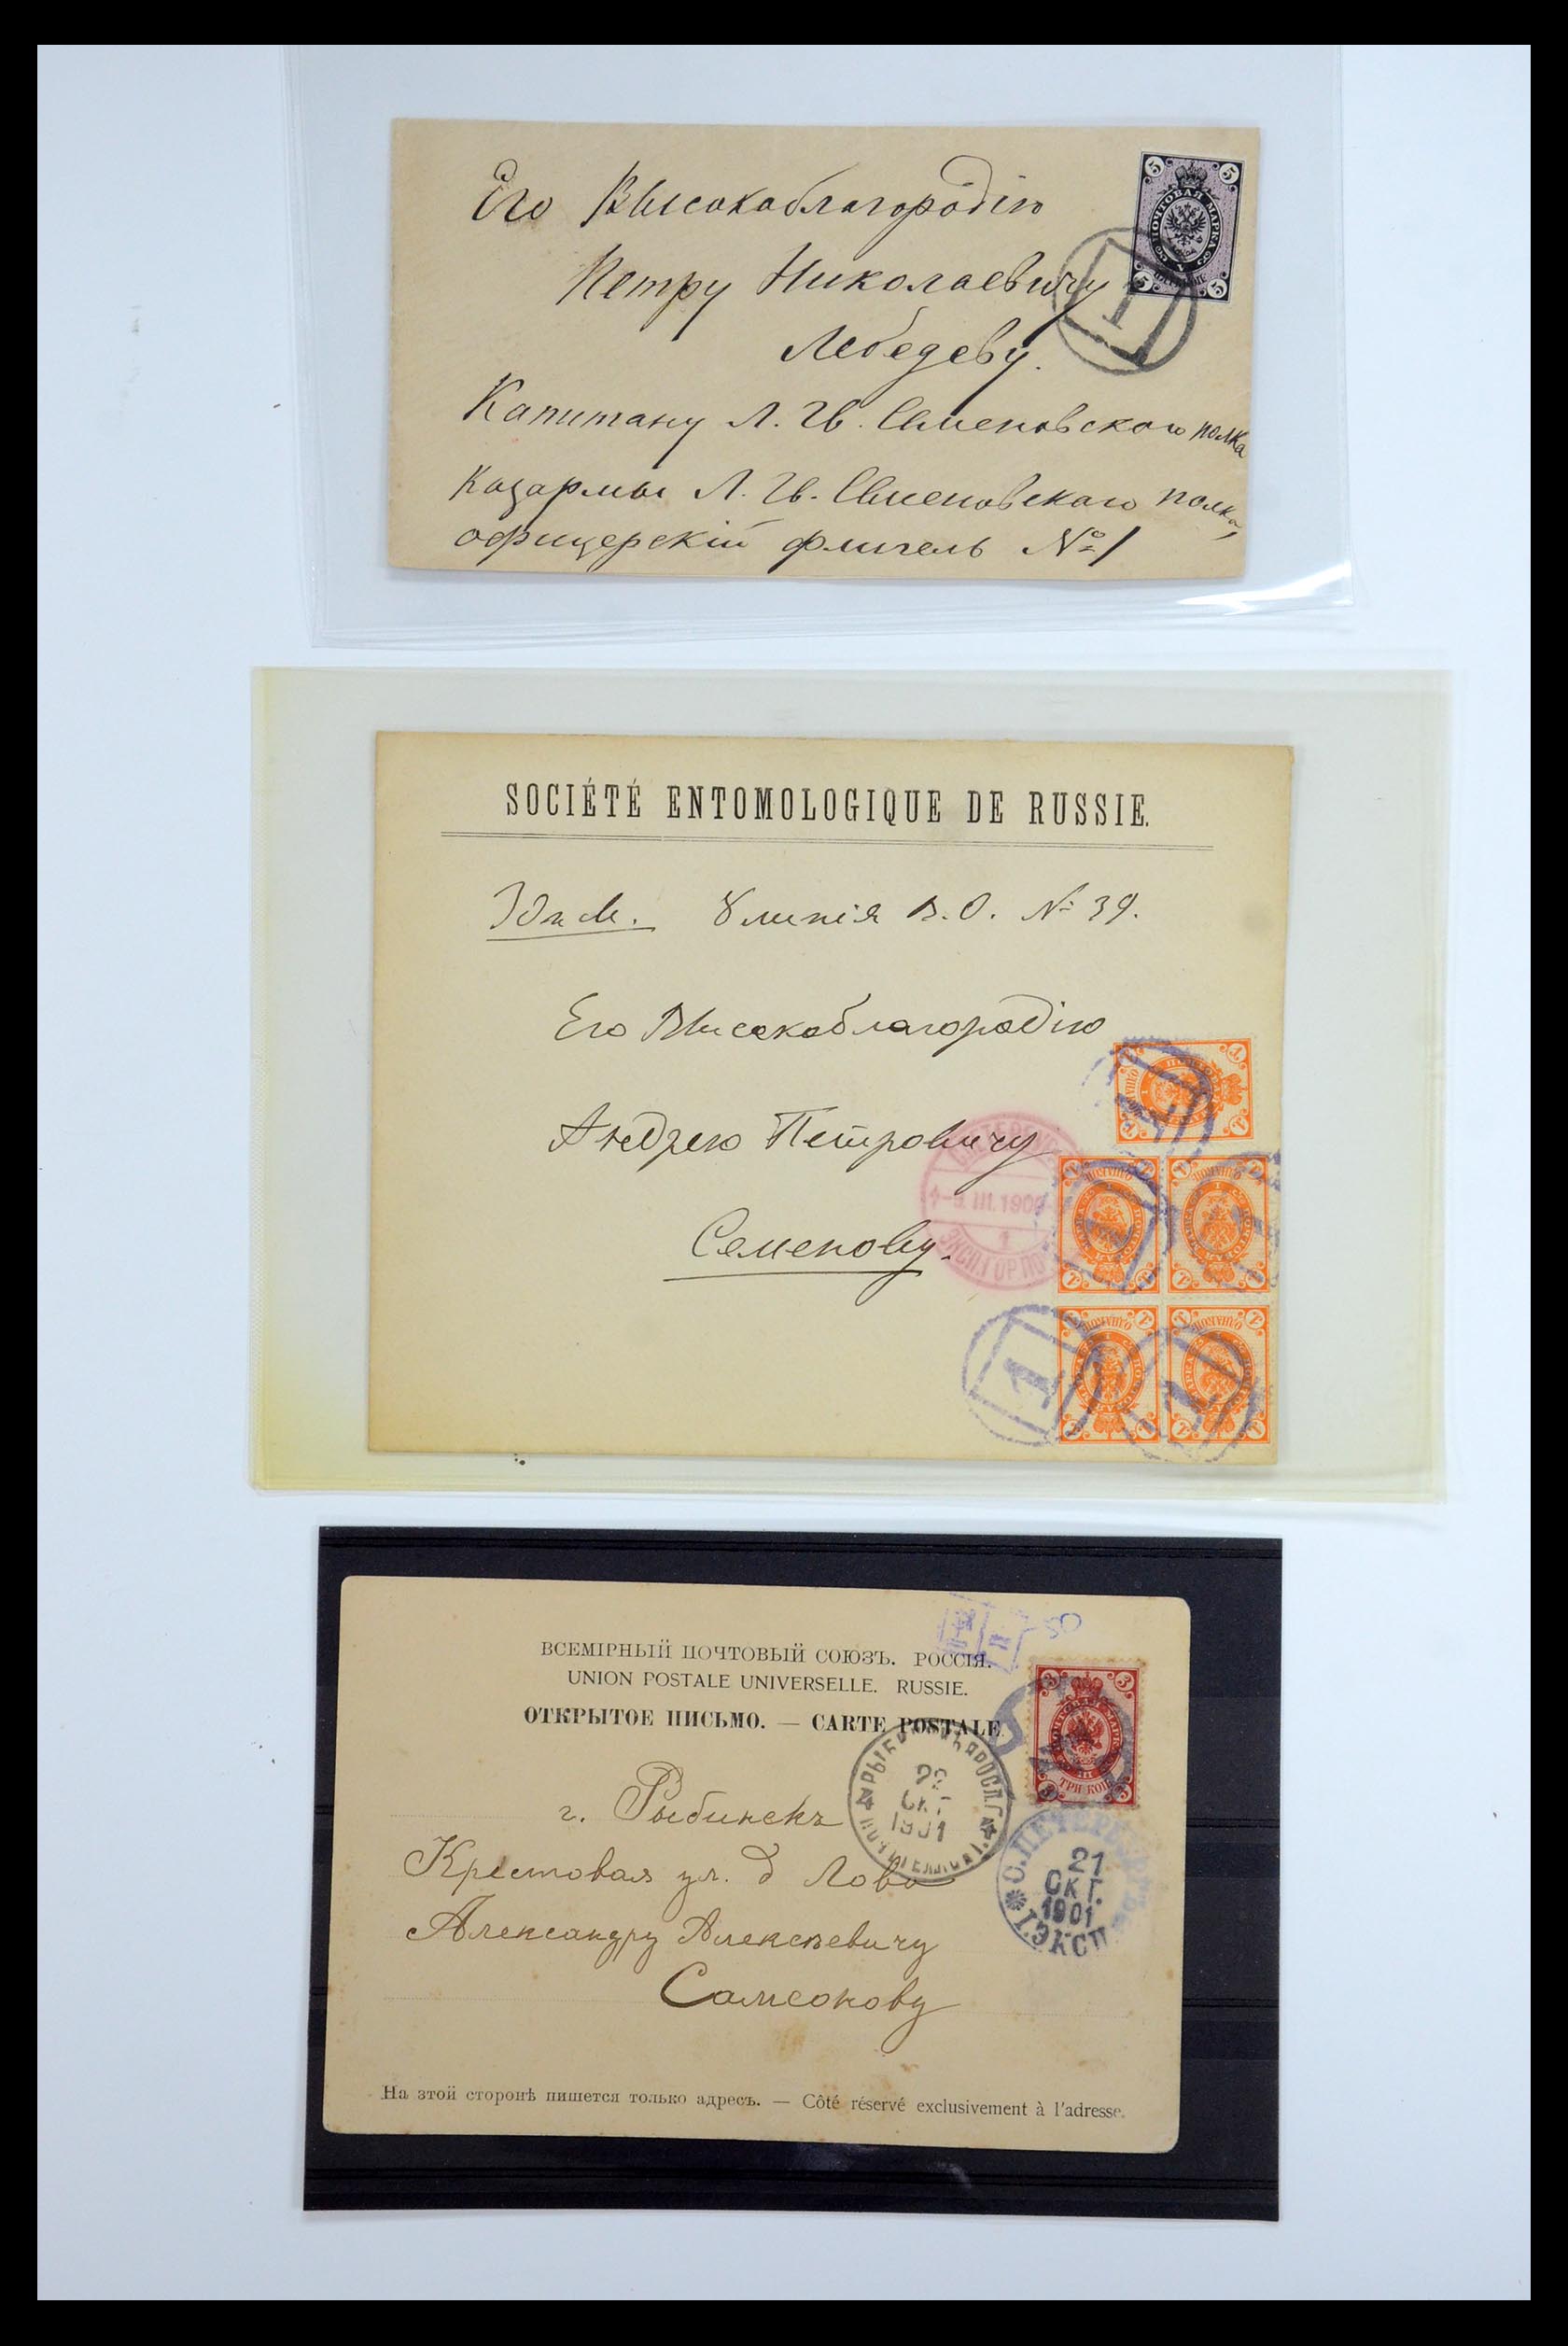 Его Высокоблагородію
Петру Николаевичу
Лебедеву.
Капитану Л. Гв. Семеновского полка
Казармы Л. Гв. Семеновскаго полка,
офицерскій флигель № 1
5 5
ПОЧТОВАЯ МАРКА
5 5
1
SOCIÉTÉ ENTOMOLOGIQUE DE RUSSIE.
Здѣсь. 8 линія В.О. № 39.
Его Высокоблагородію
Андрею Петровичу
Семенову.
III.1900
1
1
1
ВСЕМІРНЫЙ ПОЧТОВЫЙ СОЮЗЪ. РОССІЯ.
UNION POSTALE UNIVERSELLE. RUSSIE.
ОТКРЫТОЕ ПИСЬМО. — CARTE POSTALE.
3 3
ПОЧТОВАЯ МАРКА
ТРИ КОП.
22
ОКТ
1901
г. Рыбинскъ
Крестовая ул. д
Александру Алексѣевичу
Самсонову
С.ПЕТЕРБУРГЪ
21
ОКТ.
1901
1.ЭКСП
На этой сторонѣ пишется только адресъ. — Côté réservé exclusivement à l'adresse.